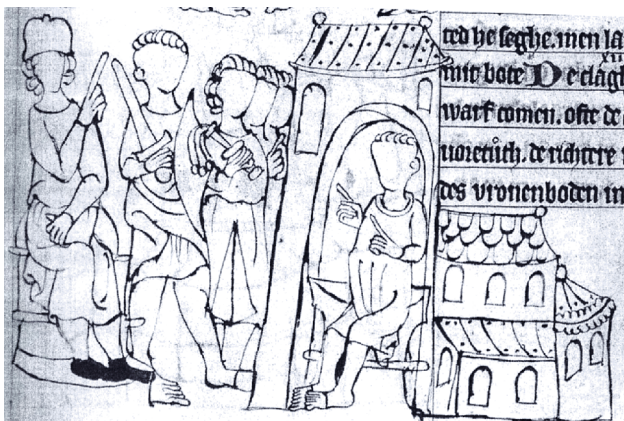 ted he seghe. men la
xii
mit bote De clagh
wark comen. ofte de
uoretuch. de richtere
des vronenboden in